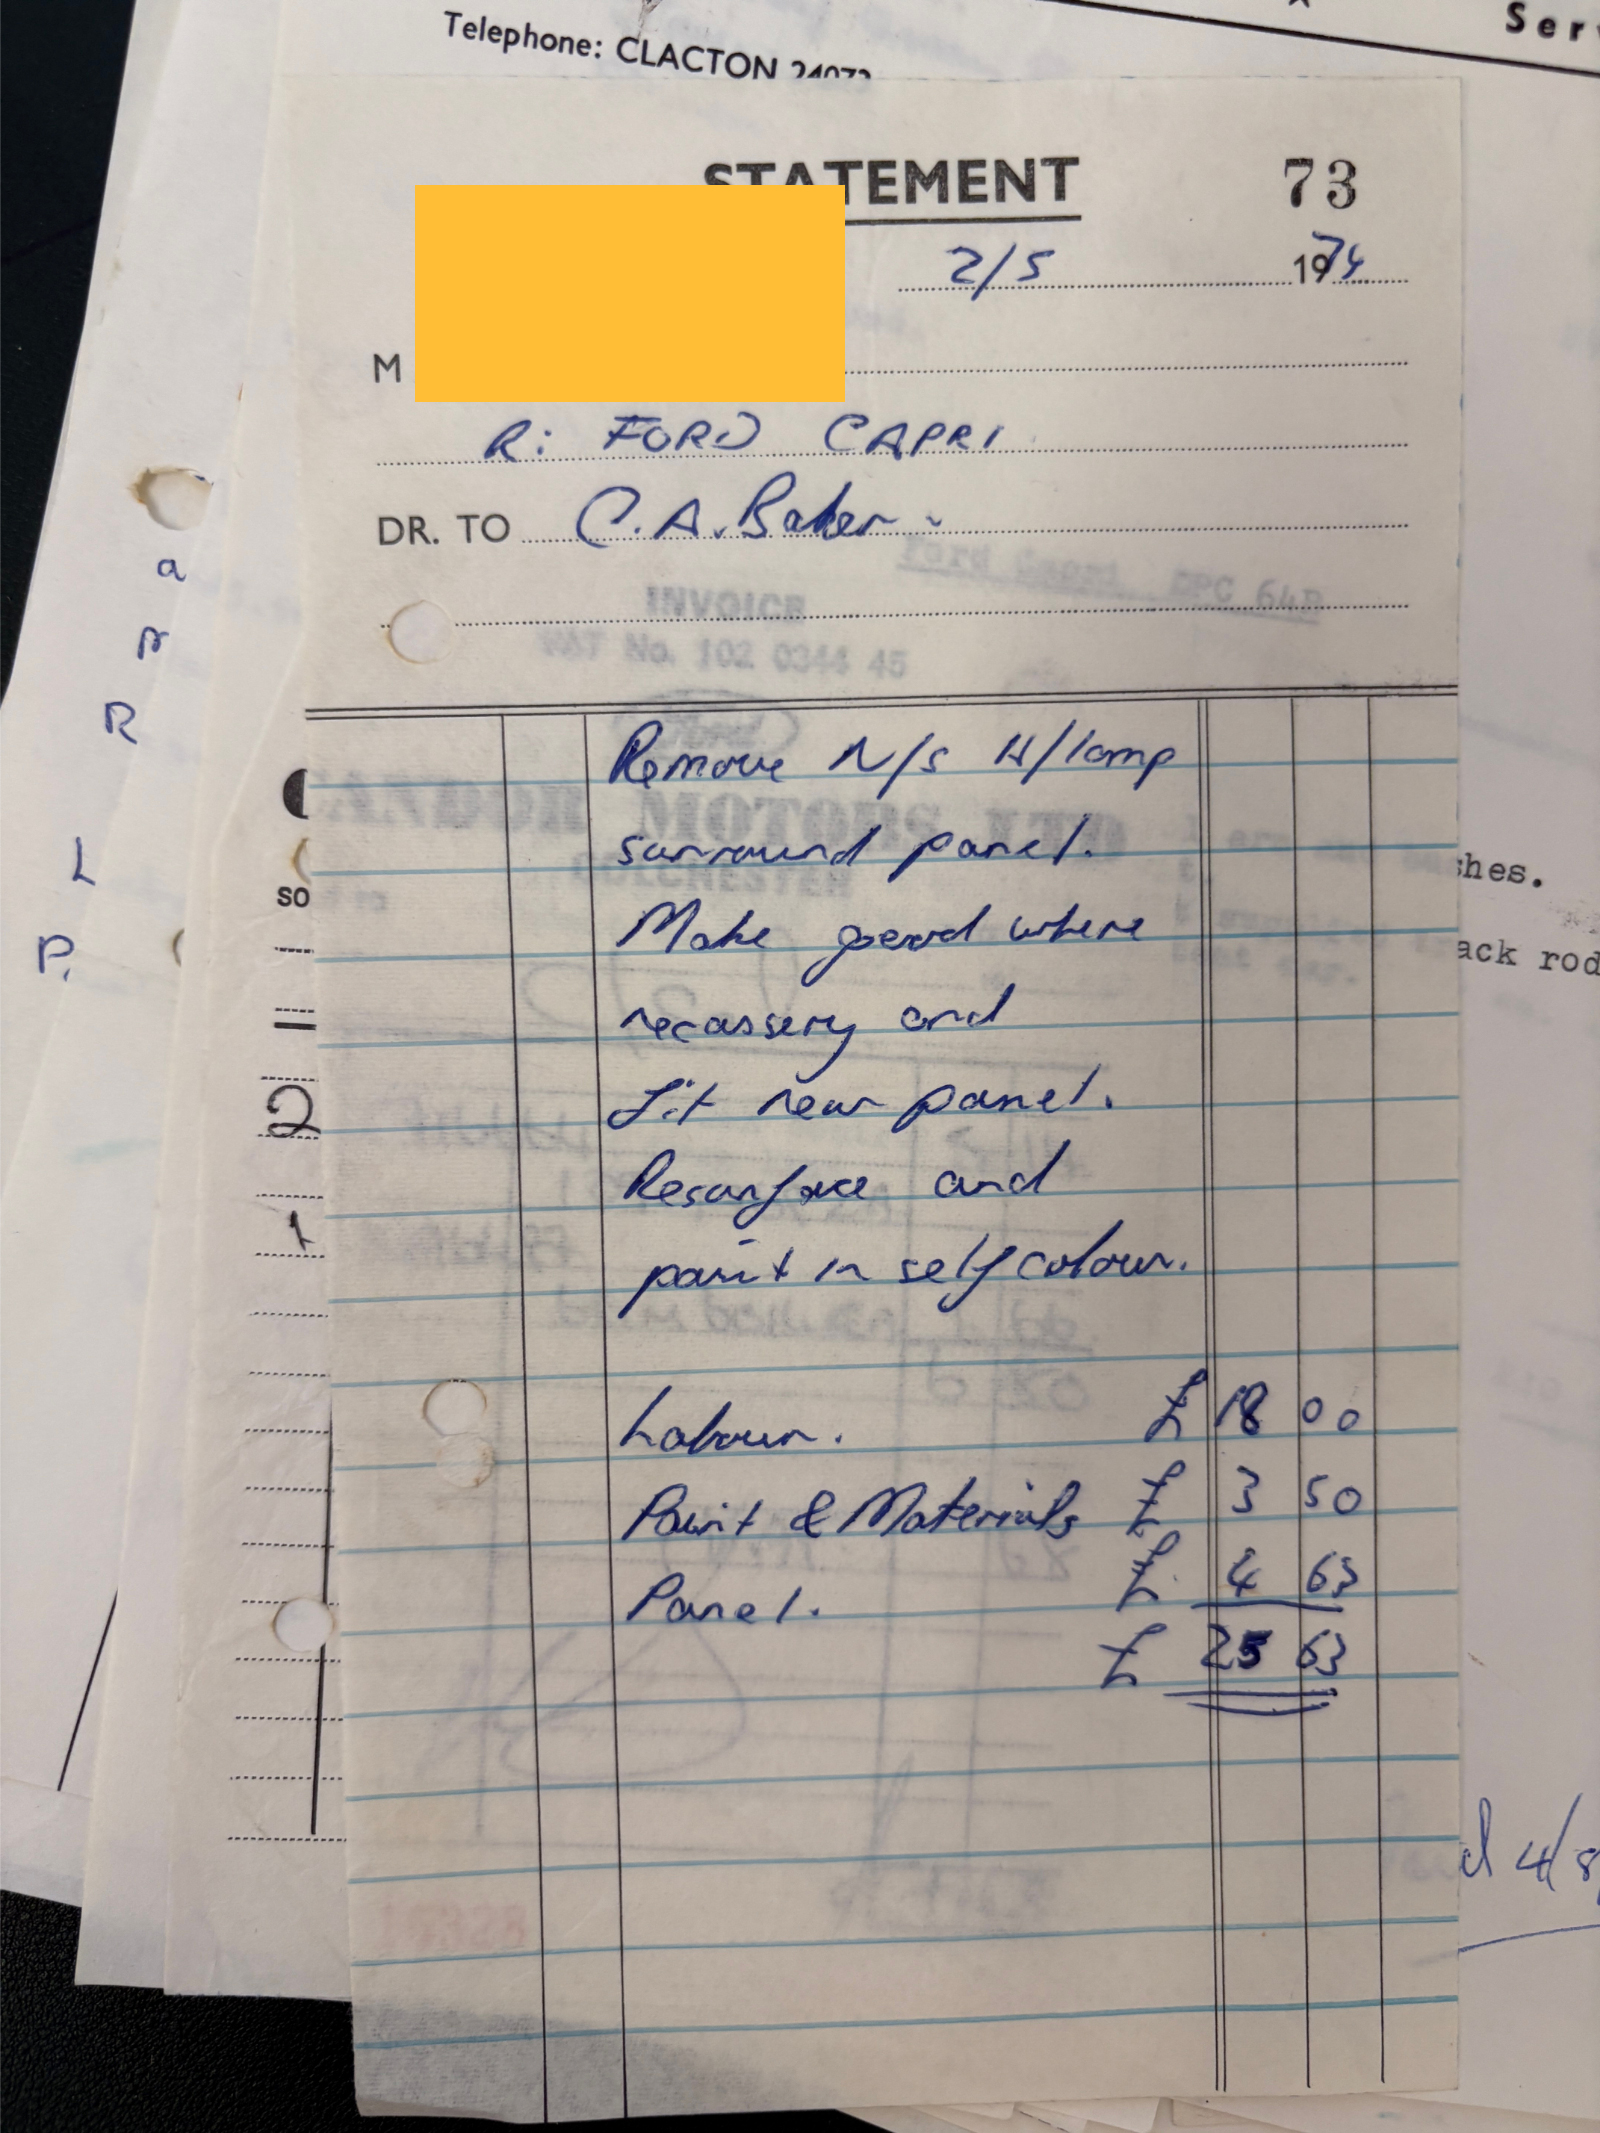 Telephone: CLACTON 24073
Ser
STATEMENT 73
2/5 1974
M
R: FORD CAPRI
DR. TO C.A. Baker
Ford Capri DPC 64
INVOICE
VAT No. 102 0344 45
Remove N/s H/lamp
MOTORS LTD
surround panel.
COLCHESTER
shes.
so
Make good where
ack rod
necassery and
fit new panel.
2
Resurface and
1
paint in self colour.
Labour. £ 18 00
Paint & Materials £ 3 50
Panel. £ 4 63
£ 25 63
d 4/8
a
R
L
P.